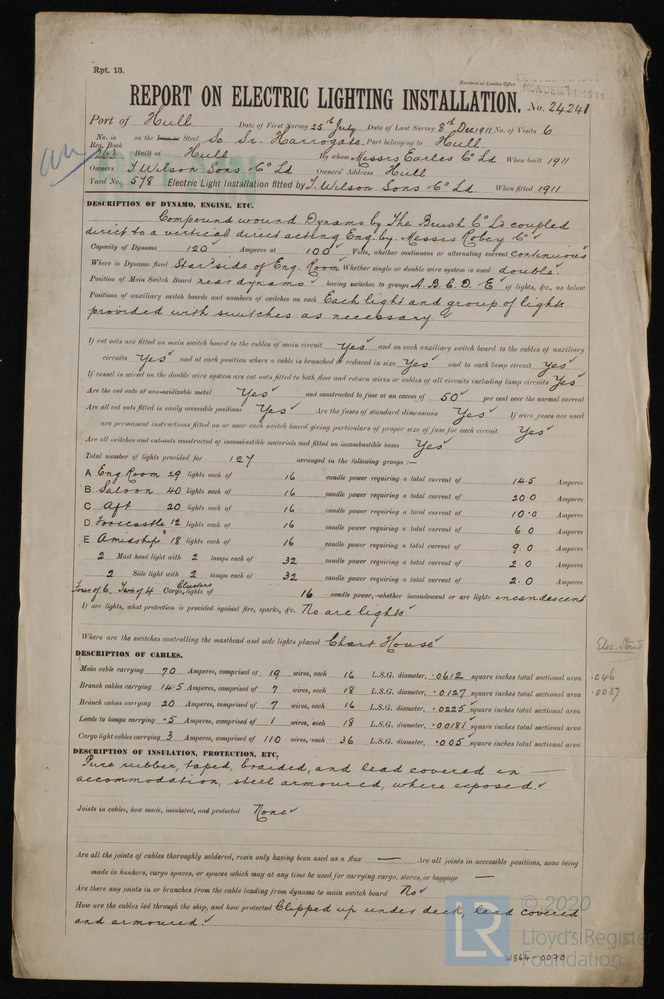 Rpt. 13.
Received at London Office
MON. DEC 11 1911
REPORT ON ELECTRIC LIGHTING INSTALLATION. No. 24241
Port of Hull Date of First Survey 25th July Date of Last Survey 8th Dec 1911 No. of Visits 6
No. in Reg. Book 263 on the Iron or Steel Sc Sr. Harrogate Port belonging to Hull
Built at Hull By whom Messrs Earles Co Ld When built 1911
Owners T. Wilson Sons & Co Ld Owners' Address Hull
Yard No. 578 Electric Light Installation fitted by T. Wilson Sons & Co Ld. When fitted 1911
DESCRIPTION OF DYNAMO, ENGINE, ETC.
Compound wound Dynamo by The Brush Co Ld coupled
direct to a vertical direct acting Eng by Messrs Robey & Co
Capacity of Dynamo 120 Amperes at 100 Volts, whether continuous or alternating current continuous
Where is Dynamo fixed Starbd side of Eng Room Whether single or double wire system is used double
Position of Main Switch Board near dynamo having switches to groups A. B. C. D. E of lights, &c., as below
Positions of auxiliary switch boards and numbers of switches on each Each light and group of lights
provided with switches as necessary
If cut outs are fitted on main switch board to the cables of main circuit Yes and on each auxiliary switch board to the cables of auxiliary
circuits Yes and at each position where a cable is branched or reduced in size Yes and to each lamp circuit Yes
If vessel is wired on the double wire system are cut outs fitted to both flow and return wires or cables of all circuits including lamp circuits Yes
Are the cut outs of non-oxidizable metal Yes and constructed to fuse at an excess of 50 per cent over the normal current
Are all cut outs fitted in easily accessible positions Yes Are the fuses of standard dimensions Yes If wire fuses are used
are permanent instructions fitted on or near each switch board giving particulars of proper size of fuse for each circuit Yes
Are all switches and cut-outs constructed of incombustible materials and fitted on incombustible bases Yes
Total number of lights provided for 127 arranged in the following groups :—
A Eng Room 29 lights each of 16 candle power requiring a total current of 14.5 Amperes
B Saloon 40 lights each of 16 candle power requiring a total current of 20.0 Amperes
C Aft 20 lights each of 16 candle power requiring a total current of 10.0 Amperes
D Forecastle 12 lights each of 16 candle power requiring a total current of 6.0 Amperes
E Amidships 18 lights each of 16 candle power requiring a total current of 9.0 Amperes
2 Mast head light with 2 lamps each of 32 candle power requiring a total current of 2.0 Amperes
2 Side light with 2 lamps each of 32 candle power requiring a total current of 2.0 Amperes
Four of 6. Two of 4 Clusters Cargo lights of 16 candle power, whether incandescent or arc lights incandescent
If arc lights, what protection is provided against fire, sparks, &c. No arc lights
Where are the switches controlling the masthead and side lights placed Chart House
DESCRIPTION OF CABLES.
Main cable carrying 70 Amperes, comprised of 19 wires, each 16 L.S.G. diameter, .0612 square inches total sectional area .046
Branch cables carrying 14.5 Amperes, comprised of 7 wires, each 18 L.S.G. diameter, .0127 square inches total sectional area .0037
Branch cables carrying 20 Amperes, comprised of 7 wires, each 16 L.S.G. diameter, .0225 square inches total sectional area
Leads to lamps carrying .5 Amperes, comprised of 1 wires, each 18 L.S.G. diameter, .00181 square inches total sectional area
Cargo light cables carrying 3 Amperes, comprised of 110 wires, each 36 L.S.G. diameter, .005 square inches total sectional area
DESCRIPTION OF INSULATION, PROTECTION, ETC.
Pure rubber, taped, braided, and lead covered in
accommodation, steel armoured, where exposed.
Joints in cables, how made, insulated, and protected None
Are all the joints of cables thoroughly soldered, resin only having been used as a flux — Are all joints in accessible positions, none being
made in bunkers, cargo spaces, or spaces which may at any time be used for carrying cargo, stores, or baggage —
Are there any joints in or branches from the cable leading from dynamo to main switch board No
How are the cables led through the ship, and how protected Clipped up under deck, lead covered
and armoured.
© 2020
LR Lloyd's Register
Foundation
W864-0070